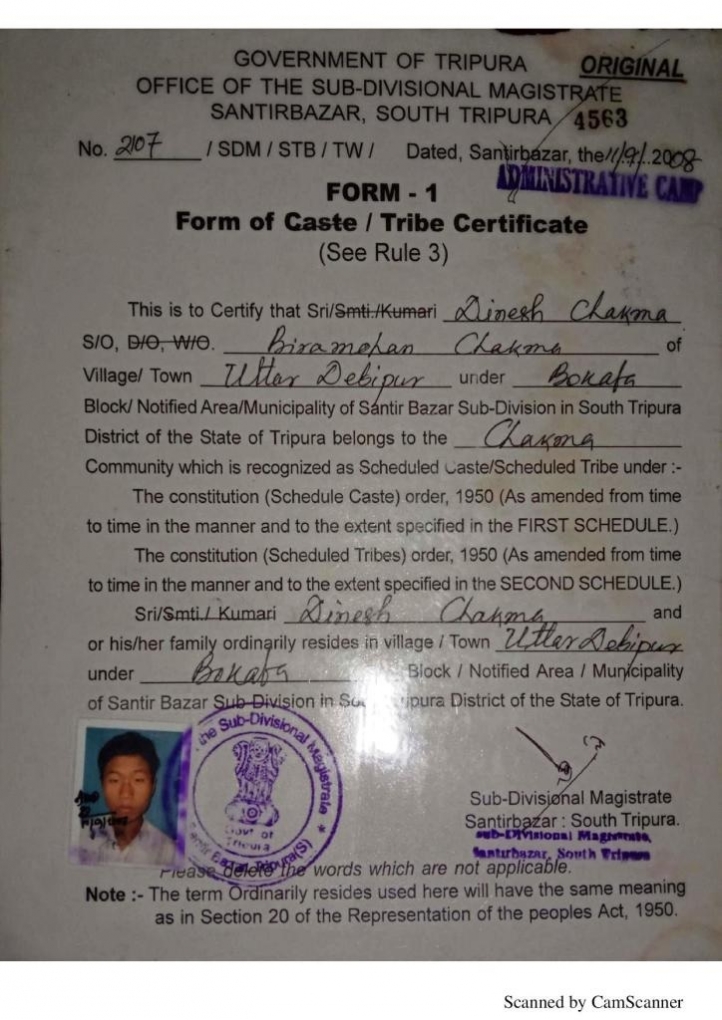 GOVERNMENT OF TRIPURA ORIGINAL
OFFICE OF THE SUB-DIVISIONAL MAGISTRATE
SANTIRBAZAR, SOUTH TRIPURA 4563
No. 2107 / SDM / STB / TW / Dated, Santirbazar, the 11/9/.2008
ADMINISTRATIVE CAMP
FORM - 1
Form of Caste / Tribe Certificate
(See Rule 3)
This is to Certify that Sri/Smti./Kumari Dinesh Chakma
S/O, D/O, W/O. Biramohan Chakma of
Village/ Town Uttar Debipur under Bokafa
Block/ Notified Area/Municipality of Santir Bazar Sub-Division in South Tripura
District of the State of Tripura belongs to the Chakma
Community which is recognized as Scheduled Caste/Scheduled Tribe under :-
The constitution (Schedule Caste) order, 1950 (As amended from time
to time in the manner and to the extent specified in the FIRST SCHEDULE.)
The constitution (Scheduled Tribes) order, 1950 (As amended from time
to time in the manner and to the extent specified in the SECOND SCHEDULE.)
Sri/Smti./ Kumari Dinesh Chakma and
or his/her family ordinarily resides in village / Town Uttar Debipur
under Bokafa Block / Notified Area / Municipality
of Santir Bazar Sub-Division in South Tripura District of the State of Tripura.
the Sub-Divisional Magistrate
Govt of
Tripura
Bazar, Tripura(S)
Sub-Divisional Magistrate
Santirbazar : South Tripura.
Sub-Divisional Magistrate,
Santirbazar, South Tripura
Please delete the words which are not applicable.
Note :- The term Ordinarily resides used here will have the same meaning
as in Section 20 of the Representation of the peoples Act, 1950.
Scanned by CamScanner